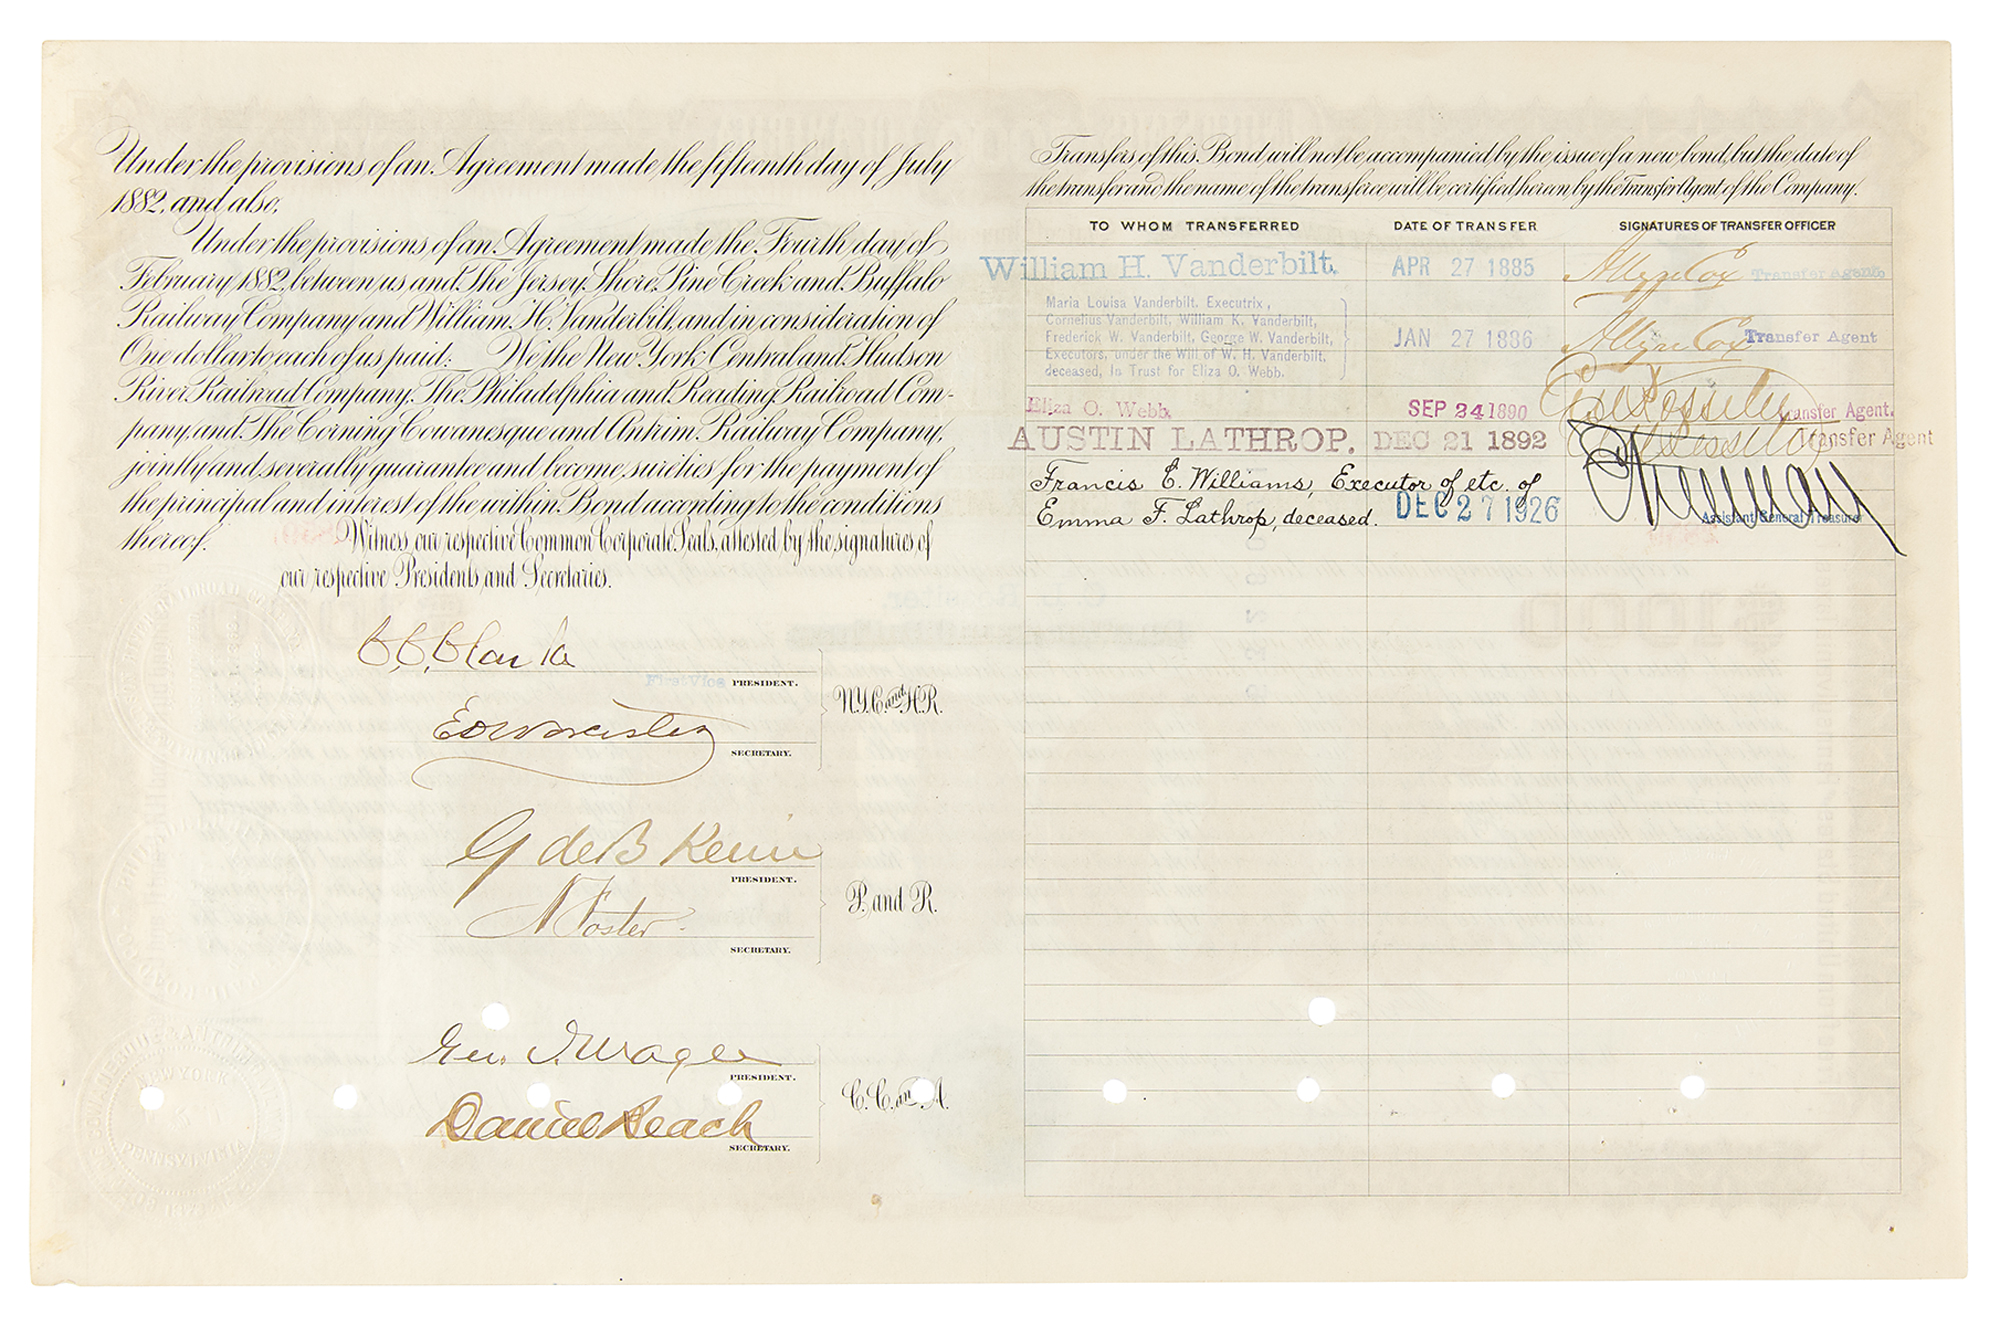 Under the provisions of an Agreement made the fifteenth day of July
1882, and also,
Under the provisions of an Agreement made the Fourth day of
February 1882, between us and The Jersey Shore Pine Creek and Buffalo
Railway Company and William H. Vanderbilt, and in consideration of
One dollar to each of us paid: We the New York Central and Hudson
River Railroad Company, The Philadelphia and Reading Railroad Com-
pany, and The Corning Cowanesque and Antrim Railway Company,
jointly and severally guarantee and become sureties for the payment of
the principal and interest of the within Bond according to the conditions
thereof.
Witness our respective Common Corporate Seals, attested by the signatures of
our respective Presidents and Secretaries.
First Vice PRESIDENT.
N.Y.C. and H.R.
E D Worcester
SECRETARY.
G de B Keim
PRESIDENT.
P. and R.
Foster
SECRETARY.
Geo. J. Magee
PRESIDENT.
C. C. and A.
Daniel Beach
SECRETARY.
NEW YORK
PENNSYLVANIA
Transfers of this Bond will not be accompanied by the issue of a new bond, but the date of
the transfer and the name of the transferee will be certified hereon by the Transfer Agent of the Company.
TO WHOM TRANSFERRED DATE OF TRANSFER SIGNATURES OF TRANSFER OFFICER
William H. Vanderbilt. APR 27 1885 Allyn Cox Transfer Agent.
Maria Louisa Vanderbilt. Executrix,
Cornelius Vanderbilt, William K. Vanderbilt,
Frederick W. Vanderbilt, George W. Vanderbilt, JAN 27 1886 Allyn Cox Transfer Agent
Executors, under the Will of W. H. Vanderbilt,
deceased, In Trust for Eliza O. Webb.
Eliza O. Webb. SEP 24 1890 Transfer Agent.
AUSTIN LATHROP. DEC 21 1892 Transfer Agent
Francis E. Williams, Executor of etc. of
Emma F. Lathrop, deceased. DEC 27 1926 Assistant General Treasurer
$1000